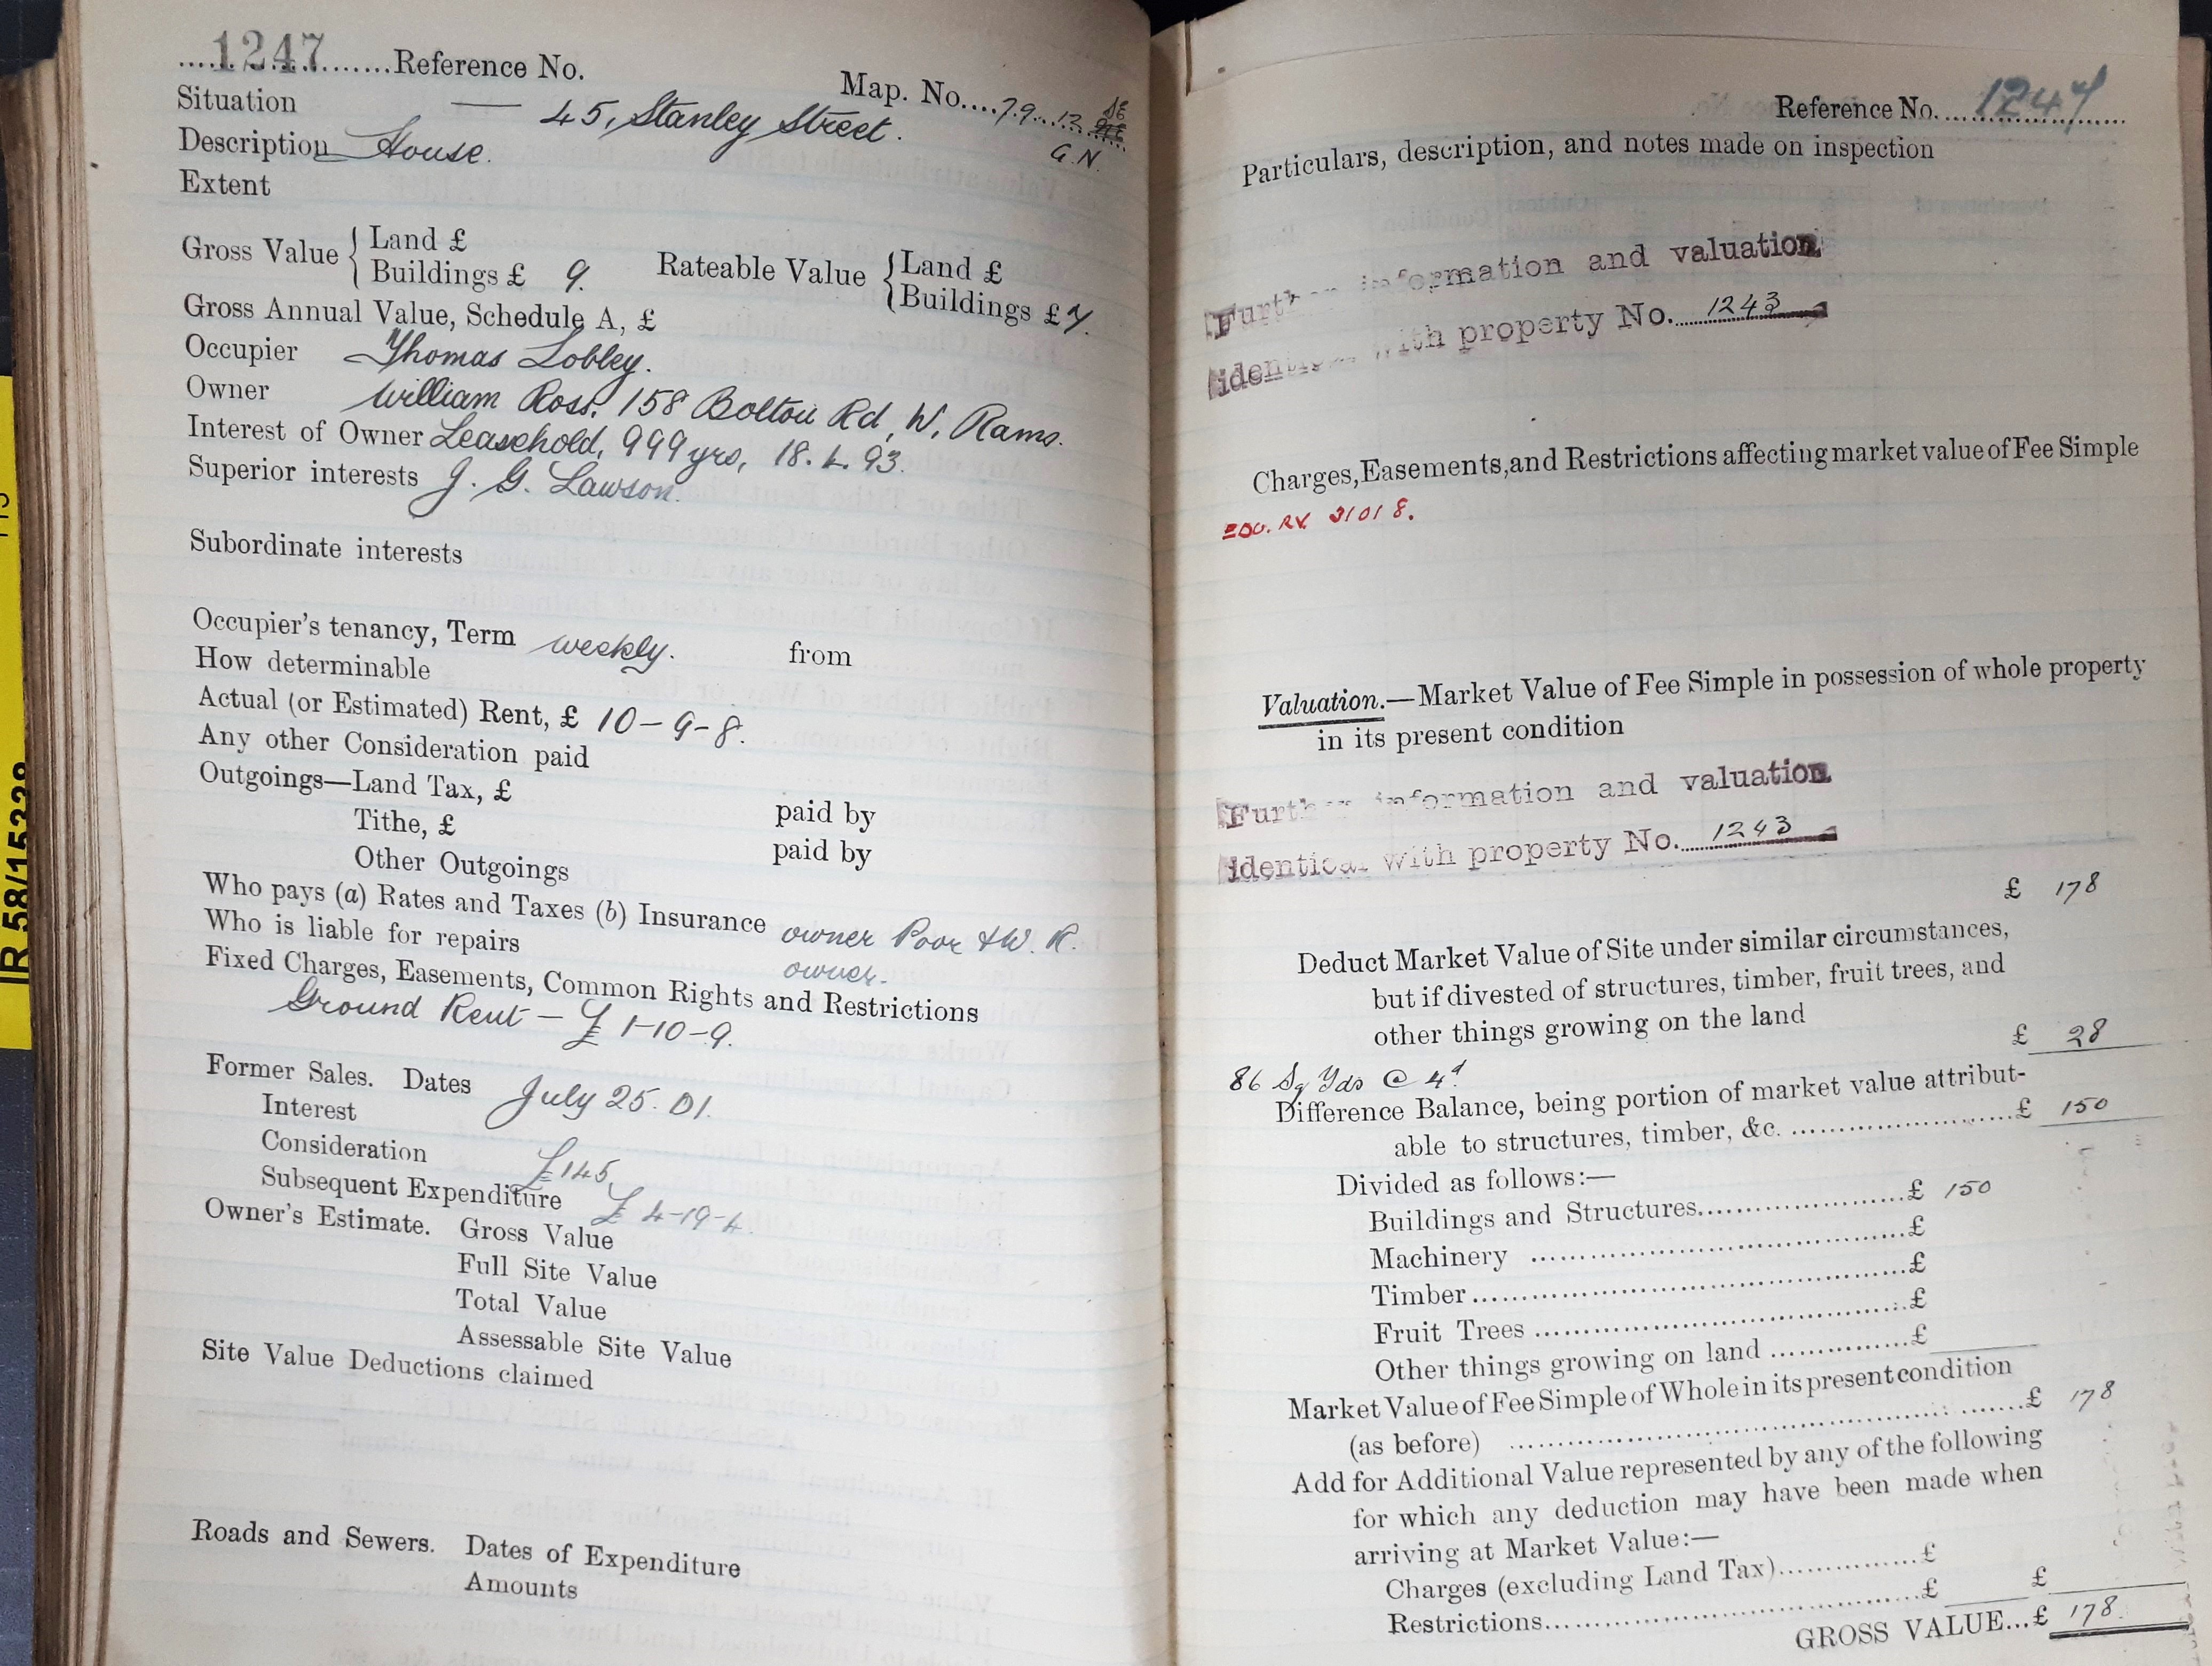 1247 Reference No. Map. No. 79.12 SE
G.N.
Situation — 45, Stanley Street.
Description House.
Extent
Gross Value { Land £
Buildings £ 9. Rateable Value { Land £
Buildings £ 7.
Gross Annual Value, Schedule A, £
Occupier Thomas Lobley.
Owner William Ross, 158 Bolton Rd, W. Rams.
Interest of Owner Leasehold, 999 yrs, 18.4.93.
Superior interests J. G. Lawson.
Subordinate interests
Occupier's tenancy, Term weekly. from
How determinable
Actual (or Estimated) Rent, £ 10-9-8.
Any other Consideration paid
Outgoings—Land Tax, £ paid by
Tithe, £ paid by
Other Outgoings
Who pays (a) Rates and Taxes (b) Insurance owner Poor & W. R.
Who is liable for repairs owner.
Fixed Charges, Easements, Common Rights and Restrictions
Ground Rent — £ 1-10-9.
Former Sales. Dates July 25. 01.
Interest
Consideration £145
Subsequent Expenditure £ 4-19-4.
Owner's Estimate. Gross Value
Full Site Value
Total Value
Assessable Site Value
Site Value Deductions claimed
Roads and Sewers. Dates of Expenditure
Amounts
R 58/15328
Reference No. 1247
Particulars, description, and notes made on inspection
Further information and valuation
identical with property No. 1243
Charges, Easements, and Restrictions affecting market value of Fee Simple
RV. 31018.
Valuation.—Market Value of Fee Simple in possession of whole property
in its present condition
Further information and valuation
identical with property No. 1243
£ 178
Deduct Market Value of Site under similar circumstances,
but if divested of structures, timber, fruit trees, and
other things growing on the land £ 28
86 Sq Yds @ 4d
Difference Balance, being portion of market value attribut-
able to structures, timber, &c. £ 150
Divided as follows:—
Buildings and Structures £ 150
Machinery £
Timber £
Fruit Trees £
Other things growing on land £
Market Value of Fee Simple of Whole in its present condition
(as before) £ 178
Add for Additional Value represented by any of the following
for which any deduction may have been made when
arriving at Market Value:—
Charges (excluding Land Tax) £
Restrictions £ £
GROSS VALUE...£ 178.